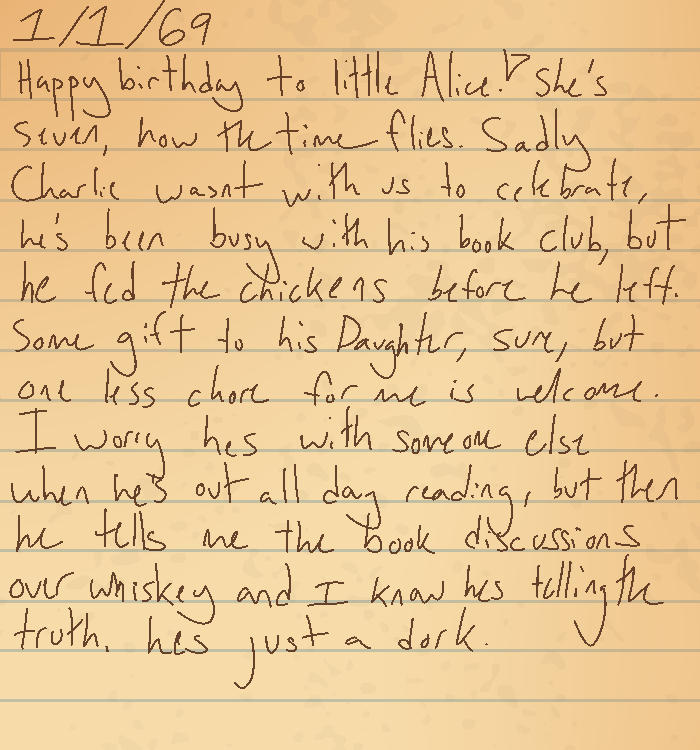 1/1/69
Happy birthday to little Alice! She's
seven, how the time flies. Sadly
Charlie wasnt with us to celebrate,
he's been busy with his book club, but
he fed the chickens before he left.
Some gift to his Daughter, sure, but
one less chore for me is welcome.
I worry hes with someone else
when he's out all day reading, but then
he tells me the book discussions
over whiskey and I know hes telling the
truth. hes just a dork.